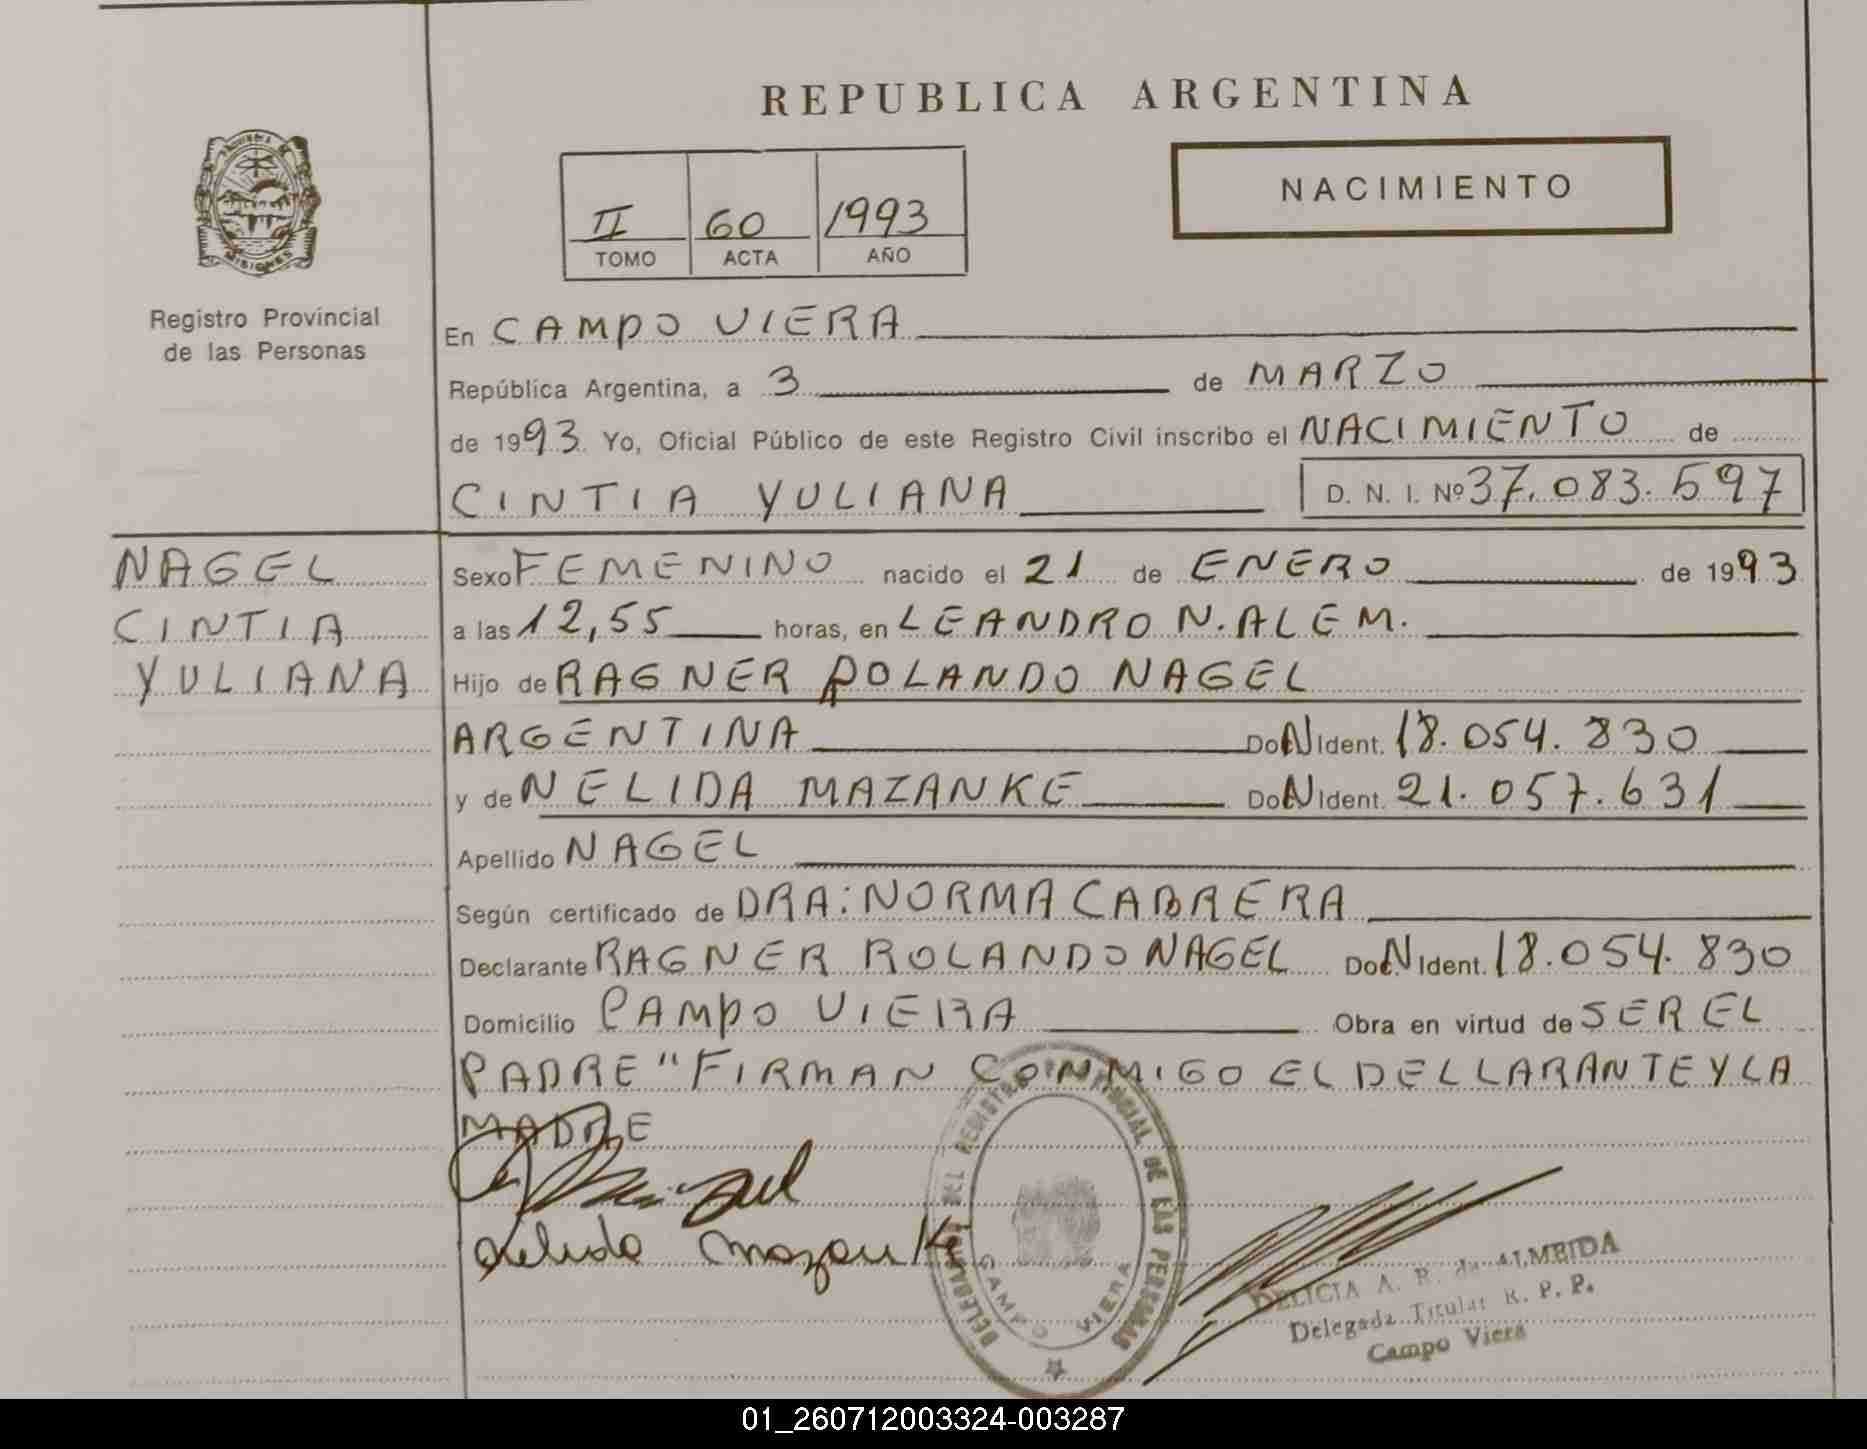 REPUBLICA ARGENTINA
NACIMIENTO
II 60 1993
TOMO ACTA AÑO
MISIONES
Registro Provincial
de las Personas
En CAMPO VIERA
República Argentina, a 3 de MARZO
de 1993. Yo, Oficial Público de este Registro Civil inscribo el NACIMIENTO de
CINTIA YULIANA D. N. I. Nº 37.083.597
NAGEL
CINTIA
YULIANA
Sexo FEMENINO nacido el 21 de ENERO de 1993
a las 12,55 horas, en LEANDRO N. ALEM.
Hijo de RAGNER ROLANDO NAGEL
ARGENTINA DoN Ident. 18.054.830
y de NELIDA MAZANKE DoN Ident. 21.057.631
Apellido NAGEL
Según certificado de DRA: NORMA CABRERA
Declarante RAGNER ROLANDO NAGEL DoN Ident. 18.054.830
Domicilio CAMPO VIERA Obra en virtud de SER EL
PADRE " FIRMAN CONMIGO EL DELLARANTE Y LA
MADRE
Nelida Mazanke
DELEGACION DEL REGISTRO PROVINCIAL DE LAS PERSONAS
CAMPO VIERA
DELICIA A. R. de ALMEIDA
Delegada Titular R. P. P.
Campo Viera
01_260712003324-003287